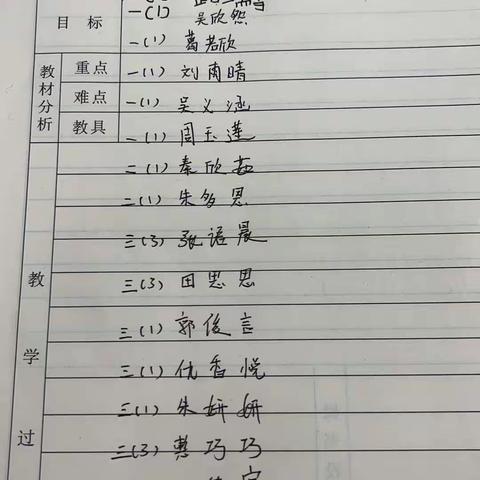 一(1) 吴欣怨
目标
一(1) 葛若欣
教材分析
重点 一(1) 刘雨晴
难点 一(1) 吴义涵
教具 一(1) 周玉莲
二(1) 秦欣茹
二(1) 朱多恩
三(3) 张语晨
教学过
三(3) 田思思
三(1) 郭俊言
三(1) 仇香悦
三(1) 朱妍妍
三(3) 龚巧巧